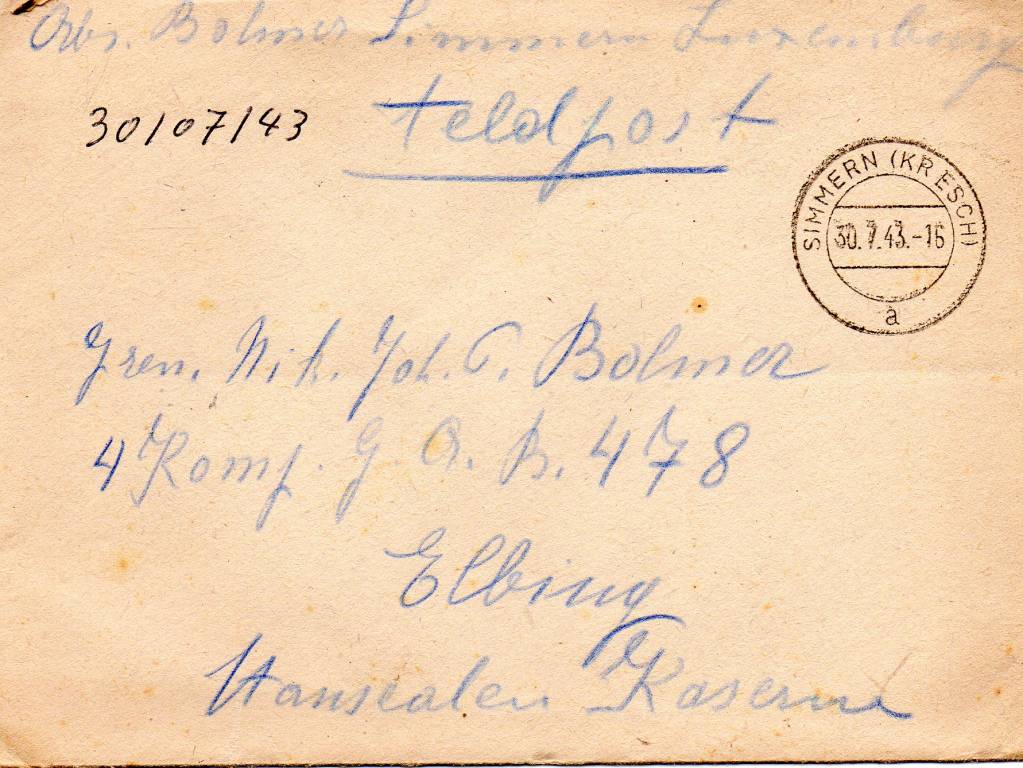 Abs. Bolmer Simmern Luxemburg
Feldpost
30/07/43
SIMMERN (KR ESCH)
30.7.43.-16
a
Gren. Nik. Joh. P. Bolmer
4 Komp. G. A. B. 478
Elbing
Hansealen Kaserne